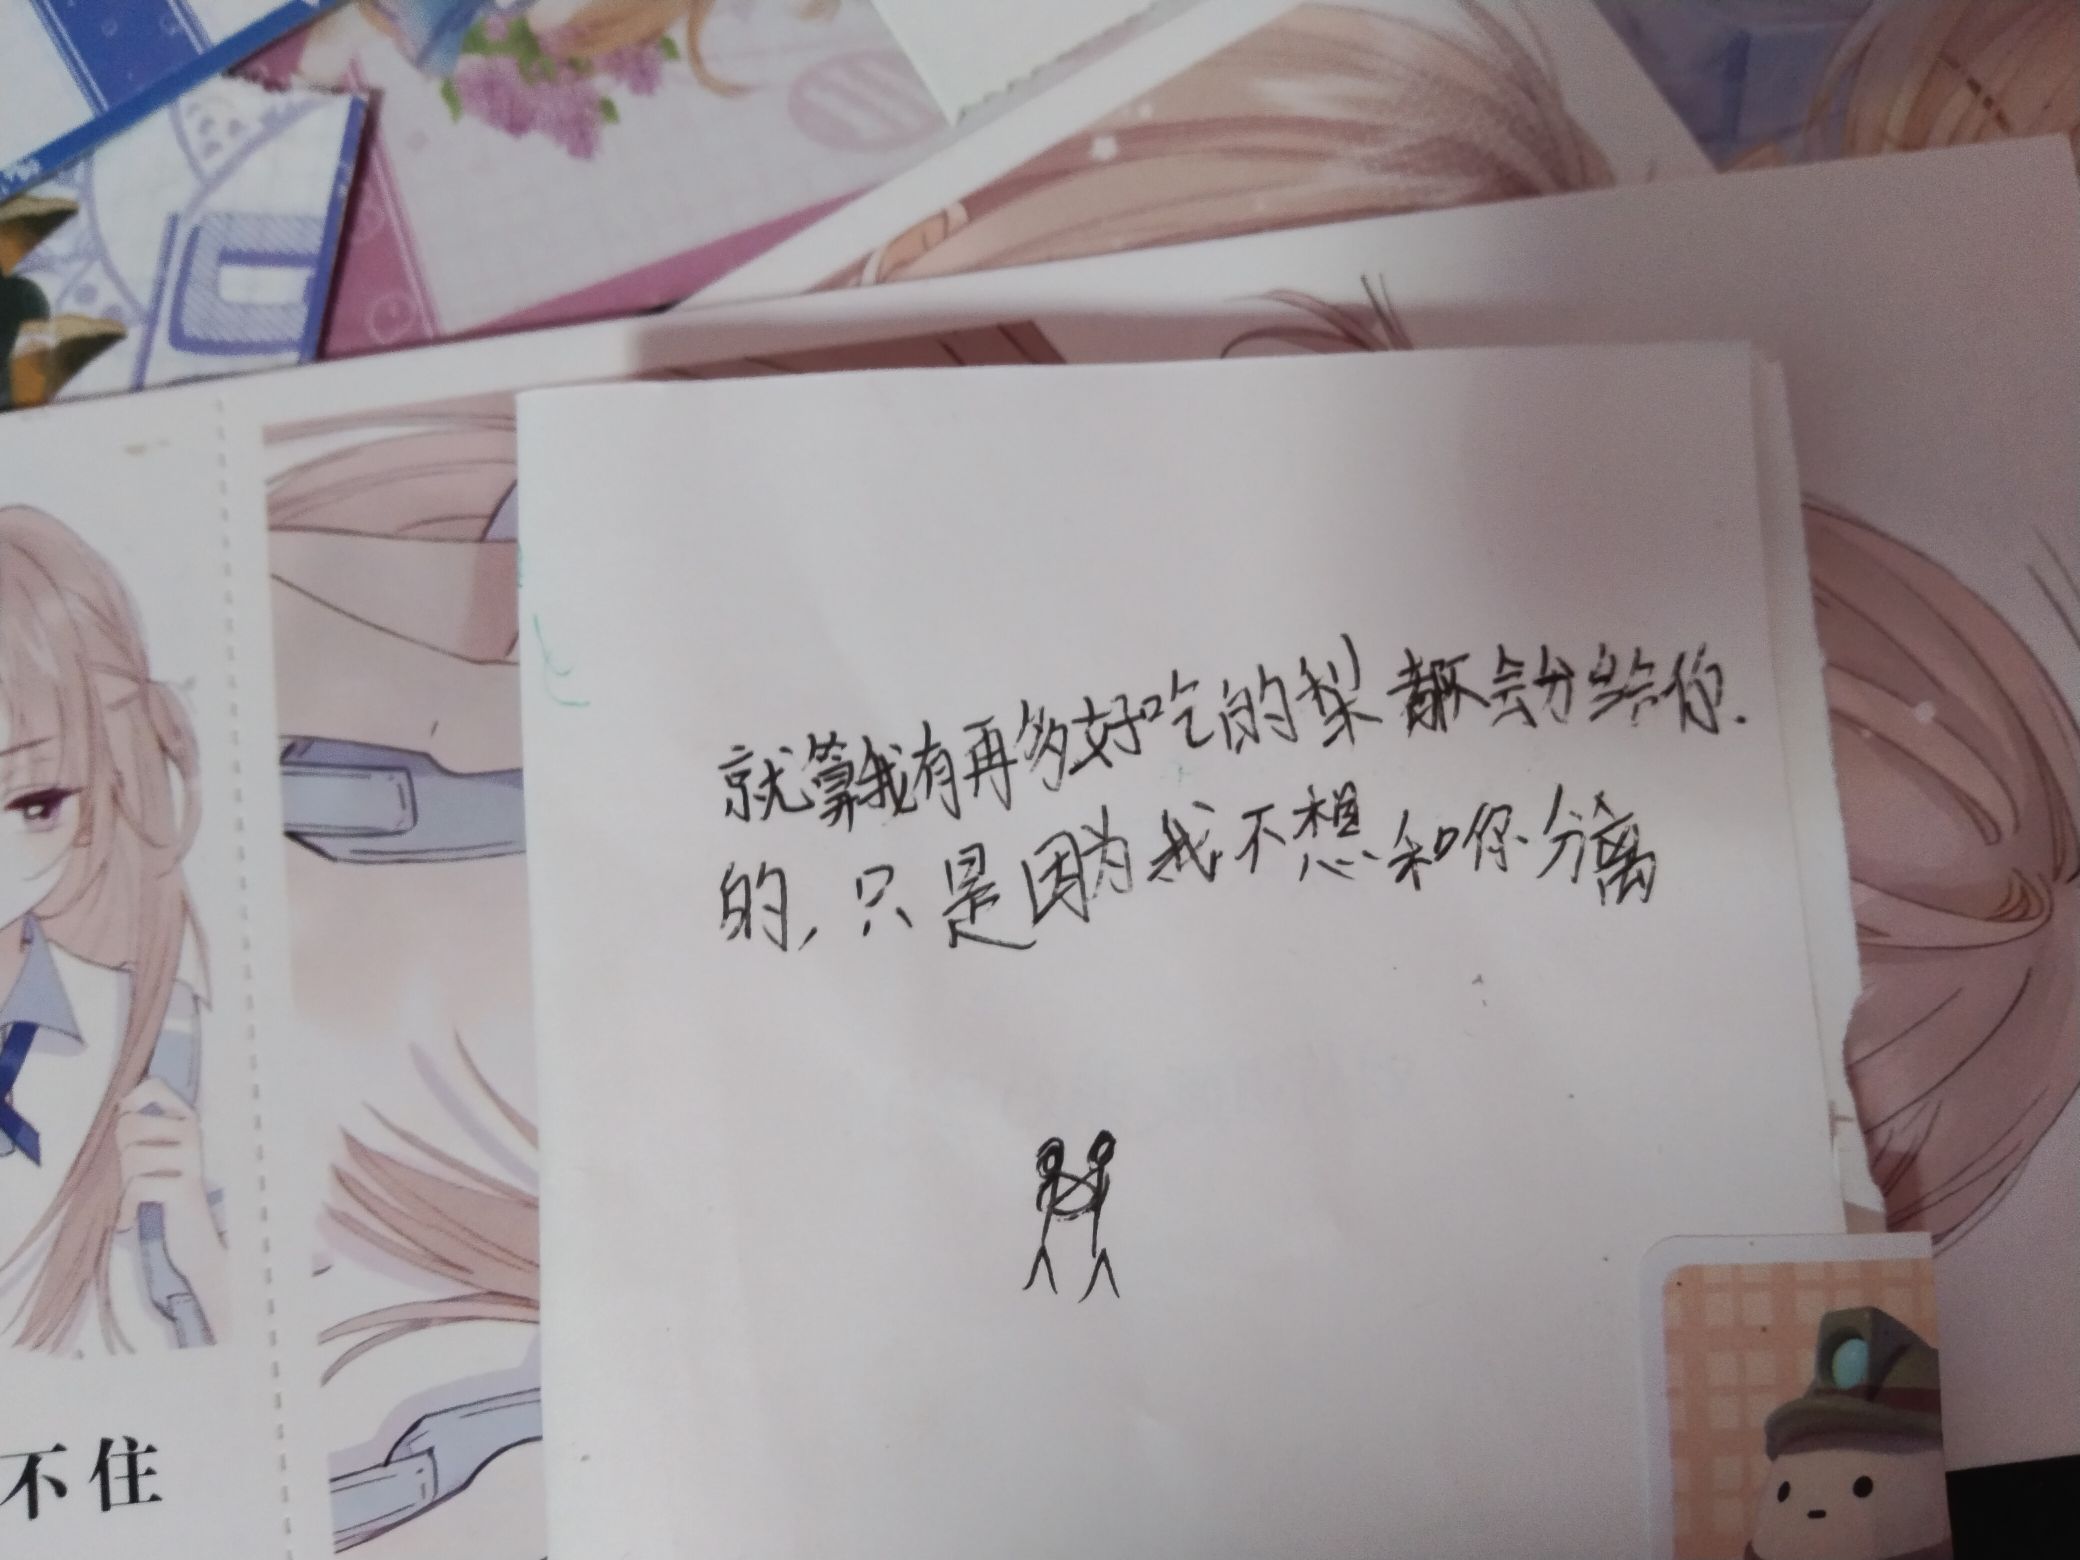 就算我有再多好吃的梨都不会分给你
的,只是因为我不想和你分离
不住